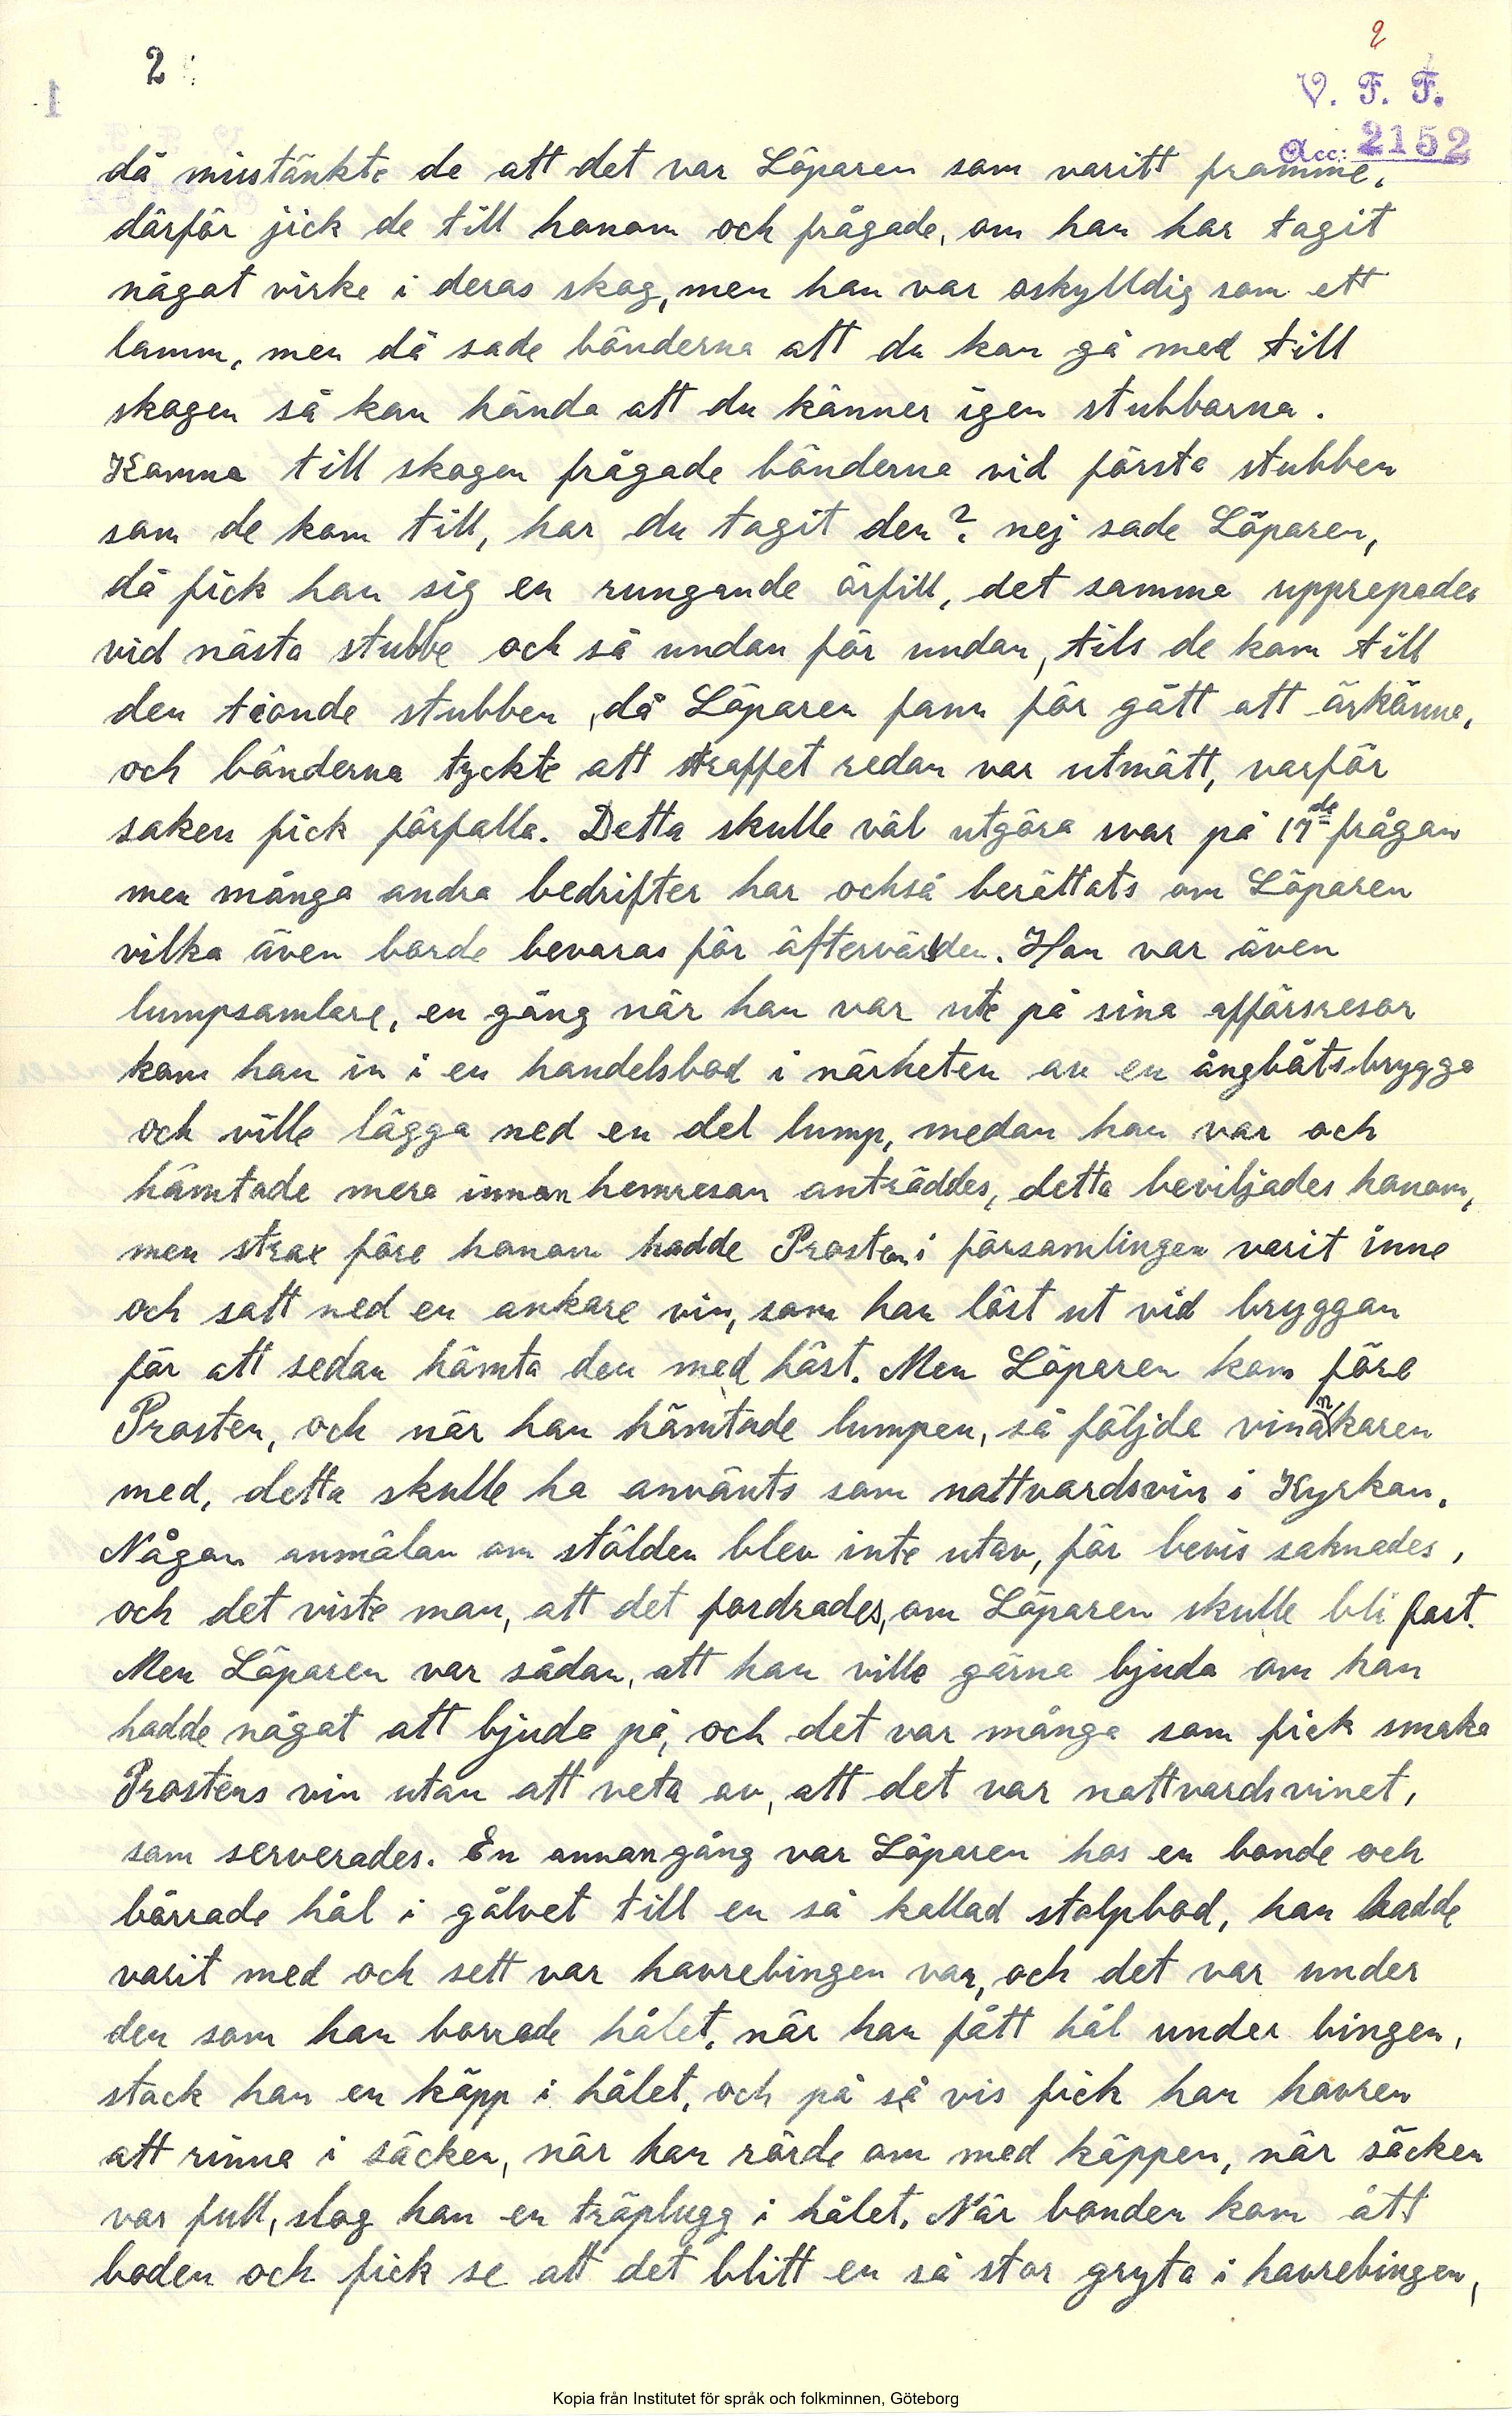 2
2
V. F. F.
Acc: 2152
då misstänkte de att det var Löparen som varitt framme,
därför jick de till honom och frågade, om han har tagit
något virke i deras skog, men han var oskylldig som ett
lamm, men då sade bönderna att du kan gå med till
skogen så kan hända att du känner igen stubbarna.
Komna till skogen frågade bönderna vid första stubben
som de kom till, har du tagit den? nej sade Löparen,
då fick han sig en rungande örfill, det samma upprepades
vid nästa stubbe och så undan för undan, tils de kom till
den tionde stubben, då Löparen fann för gått att ärkänna,
och bönderna tyckte att straffet redan var utmätt, varför
saken fick förfalla. Detta skulle väl utgöra svar på 17de frågan
men många andra bedrifter har också berättats om Löparen
vilka även borde bevaras för äftervärlden. Han var även
lumpsamlare, en gång när han var ute på sina affärsresor
kom han in i en handelsbod i närheten av en ångbåtsbrygga
och ville lägga ned en del lump, medan han var och
hämtade mera innan hemresan anträddes, detta beviljades honom,
men strax före honom hadde Prosten i församlingen varit inne
och satt ned en ankare vin, som han löst ut vid bryggan
för att sedan hämta den med häst. Men Löparen kom före
Prosten, och när han hämtade lumpen, så följda vinankaren
med, detta skulle ha använts som nattvardsvin i Kyrkan.
Någon anmälan om stölden blev inte utav, för bevis saknades,
och det viste man, att det fordrades, om Löparen skulle bli fast.
Men Löparen var sådan, att han ville gärna bjuda om han
hadde något att bjuda på, och det var många som fick smaka
Prostens vin utan att veta av, att det var nattvardsvinet,
som serverades. En annan gång var Löparen hos en bonde och
börrade hål i gålvet till en så kallad stolpbod, han hadde
varit med och sett var havrebingen var, och det var under
den som han borrade hålet, när han fått hål under bingen,
stack han en käpp i hålet, och på så vis fick han havren
att rinna i säcken, när han rörde om med käppen, när säcken
var full, slog han en träplugg i hålet. När bonden kom ått
boden och fick se att det blitt en så stor gryta i havrebingen,
Kopia från Institutet för språk och folkminnen, Göteborg